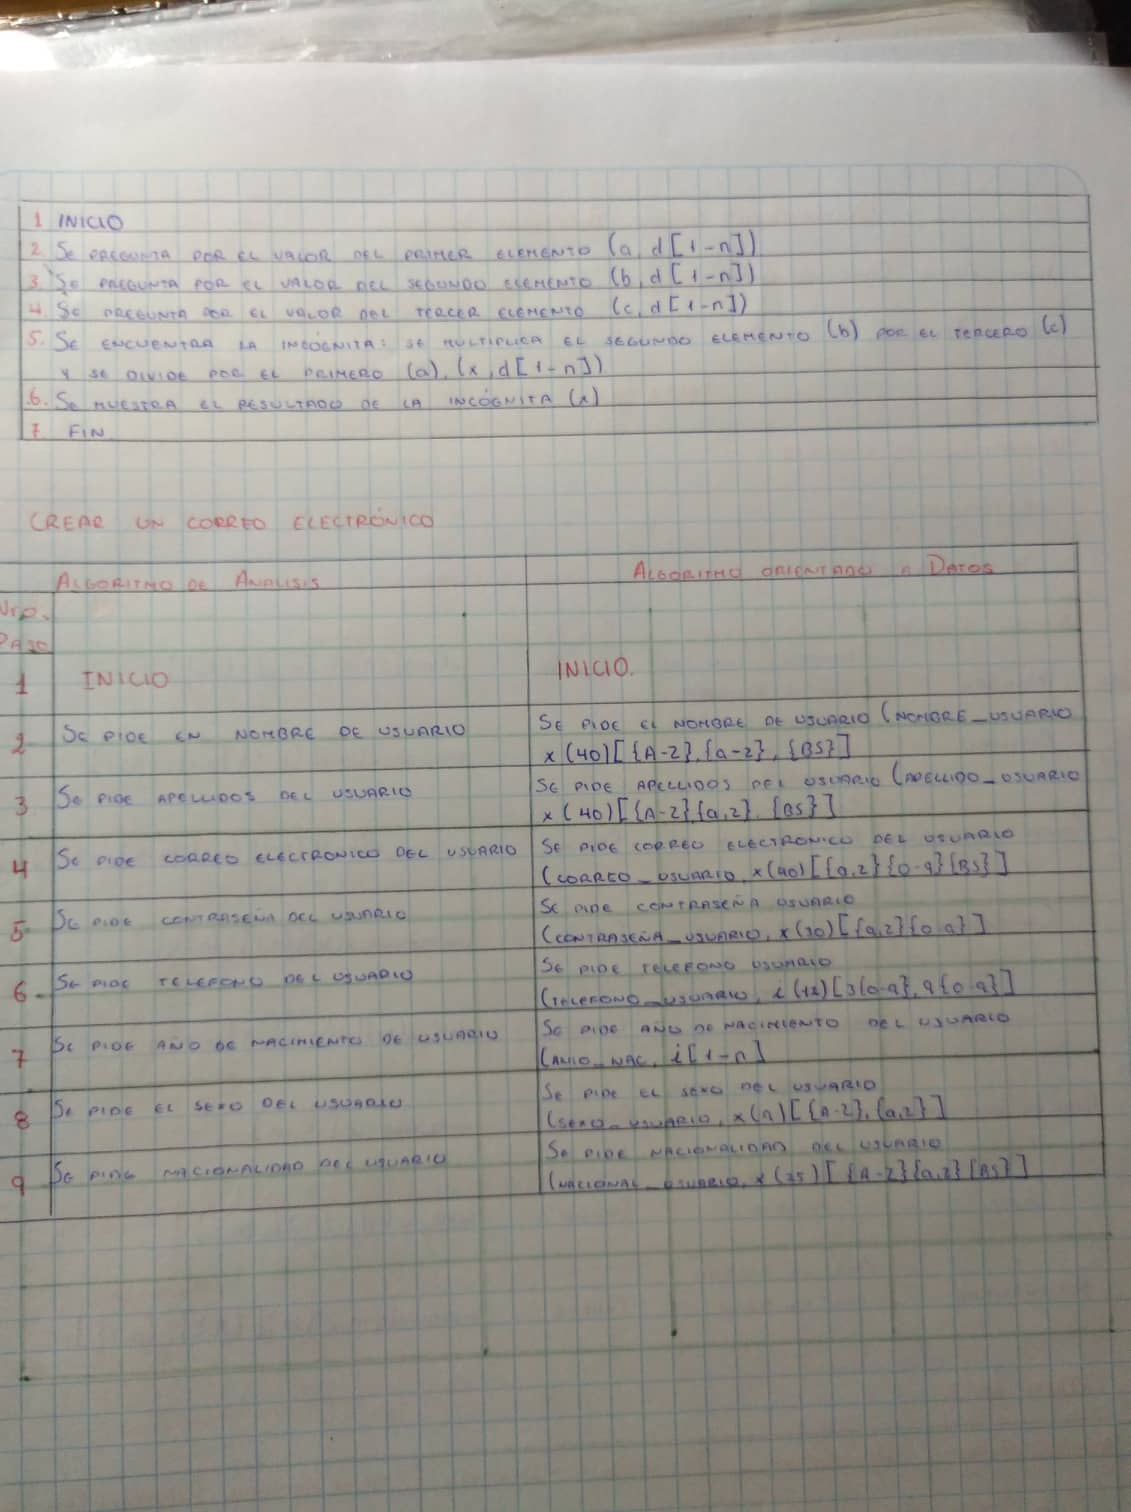 1 INICIO
2. SE PREGUNTA POR EL VALOR DEL PRIMER ELEMENTO (a, d[1-n])
3. SE PREGUNTA POR EL VALOR DEL SEGUNDO ELEMENTO (b, d[1-n])
4 SE PREGUNTA POR EL VALOR DEL TERCER ELEMENTO (c, d[1-n])
5. SE ENCUENTRA LA INCÓGNITA: SE MULTIPLICA EL SEGUNDO ELEMENTO (b) POR EL TERCERO (c)
Y SE DIVIDE POR EL PRIMERO (a), (x, d[1-n])
6. SE MUESTRA EL RESULTADO DE LA INCÓGNITA (x)
7. FIN
CREAR UN CORREO ELECTRÓNICO
ALGORITMO DE ANALISIS ALGORITMO ORIENTADO A DATOS
Nro.
PASO
1 INICIO INICIO.
2 SE PIDE EN NOMBRE DE USUARIO SE PIDE EL NOMBRE DE USUARIO (NOMBRE_USUARIO
x(40)[{A-Z},{a-z},{BS}]
3 SE PIDE APELLIDOS DEL USUARIO SE PIDE APELLIDOS DEL USUARIO (APELLIDO_USUARIO
x(40)[{A-Z}{a,z},{BS}]
4 SE PIDE CORREO ELECTRONICO DEL USUARIO SE PIDE CORREO ELECTRONICO DEL USUARIO
(CORREO_USUARIO, x(40)[{a,z}{0-9}{BS}]
5 SE PIDE CONTRASEÑA DEL USUARIO SE PIDE CONTRASEÑA USUARIO
(CONTRASEÑA_USUARIO, x(30)[{a,z}{0-9}]
6 SE PIDE TELEFONO DEL USUARIO SE PIDE TELEFONO USUARIO
(TELEFONO_USUARIO, i(12)[3{0-9},9{0-9}]
7 SE PIDE AÑO DE NACIMIENTO DE USUARIO SE PIDE AÑO DE NACIMIENTO DEL USUARIO
(ANIO_NAC, i[1-n]
8 SE PIDE EL SEXO DEL USUARIO SE PIDE EL SEXO DEL USUARIO
(SEXO_USUARIO, x(9)[{A-Z},{a,z}]
9 SE PIDE NACIONALIDAD DEL USUARIO SE PIDE NACIONALIDAD DEL USUARIO
(NACIONAL_USUARIO, x(25)[{A-Z}{a,z}{BS}]